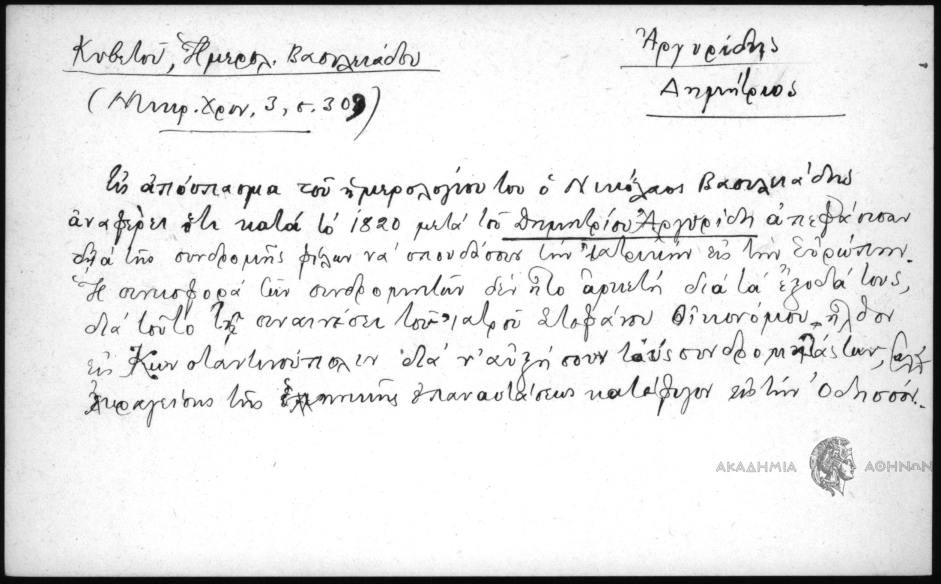 Κυβετοῦ, Ἡμερολ. Βασιλειάδου
Ἀργυρίδης
Δημήτριος
(Μικρ. Χρον. 3, σ. 309)
Εἰς ἀπόσπασμα τοῦ ἡμερολογίου του ὁ Νικόλαος Βασιλειάδης
ἀναφέρει ὅτι κατά τό 1820 μετά τοῦ Δημητρίου Ἀργυρίδη ἀπεφάσισαν
διά τῆς συνδρομῆς φίλων νά σπουδάσουν τήν ἰατρικήν εἰς τήν Εὐρώπην.
Ἡ συνεισφορά τῶν συνδρομητῶν δέν ἦτο ἀρκετή διά τά ἔξοδά τους,
διά τοῦτο τῇ συναινέσει τοῦ ἰατροῦ Στεφάνου Οἰκονόμου ἦλθον
εἰς Κωνσταντινούπολιν διά ν' αὐξήσουν τούς συνδρομητάς των, ἀλλ'
ἐκραγείσης τῆς ἑλληνικῆς ἐπαναστάσεως κατέφυγον εἰς τήν Ὀδησσόν.
ΑΚΑΔΗΜΙΑ ΑΘΗΝΩΝ